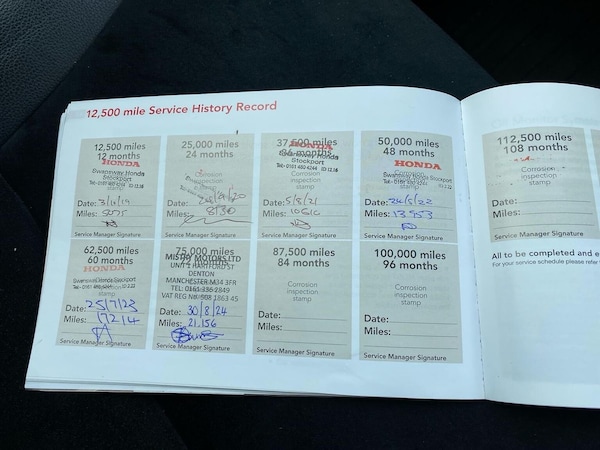 12,500 mile Service History Record
12,500 miles
12 months
HONDA
Swansway Honda
Stockport
Tel:- 0161 480 4244 ID:12.16
Date: 3/10/19
Miles:
Service Manager Signature
25,000 miles
24 months
Corrosion
inspection
stamp
Date:
Miles: 8130
Service Manager Signature
37,500 miles
36 months
HONDA
Swansway Honda
Stockport
Tel:- 0161 480 4244 ID:12.16
Corrosion
inspection
stamp
Date: 5/8/21
Miles: 10610
Service Manager Signature
50,000 miles
48 months
HONDA
Swansway Honda Stockport
Tel:- 0161 480 4244 ID:2.22
Corrosion
inspection
stamp
Date: 26/5/22
Miles: 13953
Service Manager Signature
62,500 miles
60 months
HONDA
Swansway Honda Stockport
Tel:- 0161 480 4244 ID:2.22
stamp
Date: 25/7/23
Miles: 17214
Service Manager Signature
75,000 miles
72 months
MISTRY MOTORS LTD
UNIT 1 HARTFORD ST
DENTON
MANCHESTER M34 3FR
TEL: 0161 336 2849
VAT REG No 908 1863 45
Date: 30/8/24
Miles: 21,156
Service Manager Signature
87,500 miles
84 months
Corrosion
inspection
stamp
Date:
Miles:
Service Manager Signature
100,000 miles
96 months
Corrosion
inspection
stamp
Date:
Miles:
Service Manager Signature
112,500 miles
108 months
Corrosion
inspection
stamp
Date:
Miles:
Service Manager Signature
All to be completed and
For your service schedule please refer